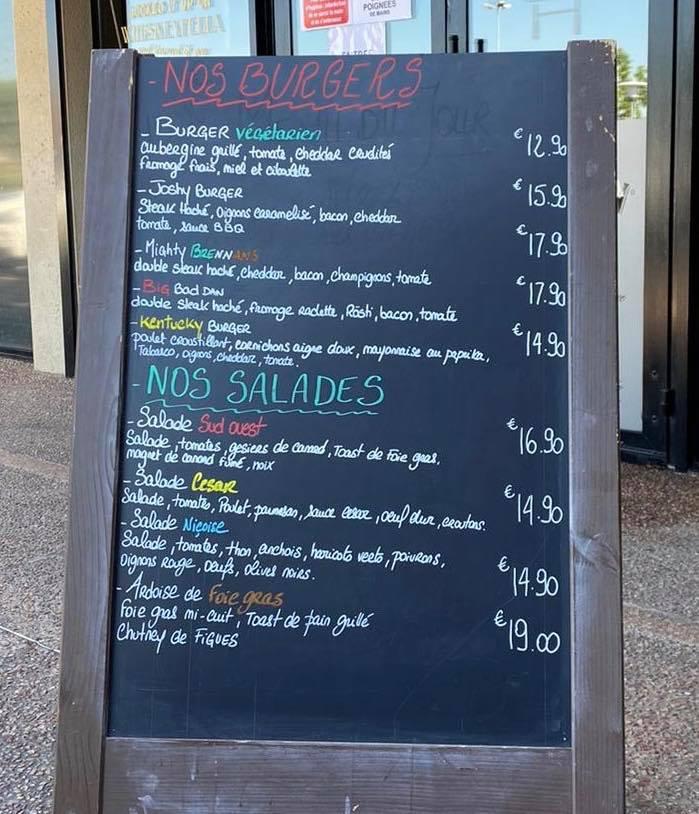 POIGNEES
DE MAINS
- NOS BURGERS
- BURGER végétarien
€12.90
aubergine grillé, tomate, cheddar crudités
fromage frais, miel et ciboulette
- Joshy BURGER
€15.90
Steak Haché, Oignons caramelisé, bacon, cheddar
tomate, sauce BBQ
- Mighty BRENNANS
€17.90
double steak haché, cheddar, bacon, champignons, tomate
- BIG Bad DAN
€17.90
double steak haché, fromage raclette, Rösti, bacon, tomate
- Kentucky BURGER
€14.90
Poulet croustillant, cornichons aigre doux, mayonnaise au paprika,
Tabasco, oignons, cheddar, tomate.
- NOS SALADES
- Salade Sud ouest
€16.90
Salade, tomates, gesiers de canard, Toast de Foie gras,
magret de canard fumé, noix
- Salade Cesar
€14.90
Salade, tomates, Poulet, parmesan, sauce cesar, oeuf dur, croutons.
- Salade Niçoise
€14.90
Salade, tomates, thon, anchois, haricots verts, poivrons,
Oignons Rouge, Oeufs, olives noires.
- Ardoise de Foie gras
€19.00
Foie gras mi-cuit, Toast de pain grillé
Chutney de FIGUES